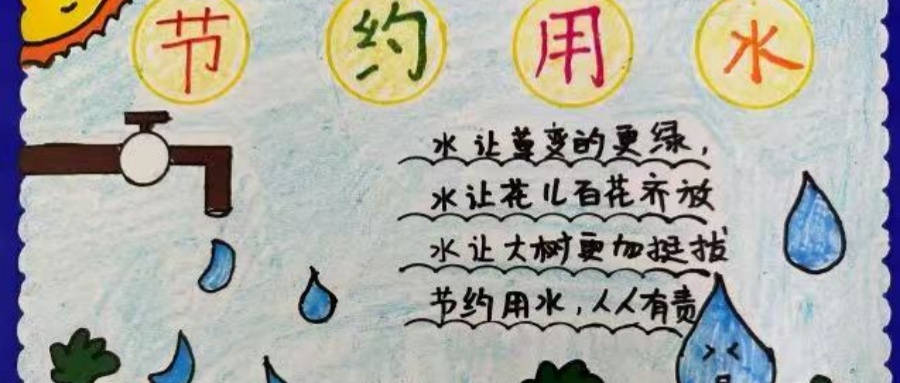 节约用水
水让草变的更绿，
水让花儿百花齐放
水让大树更加挺拔
节约用水，人人有责